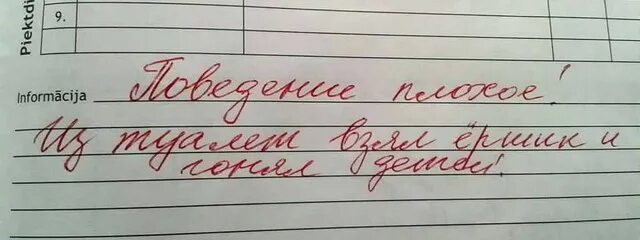 Piektdi
9.
Informācija Поведение плохое!
Из туалет взял ёршик и
гонял детей.